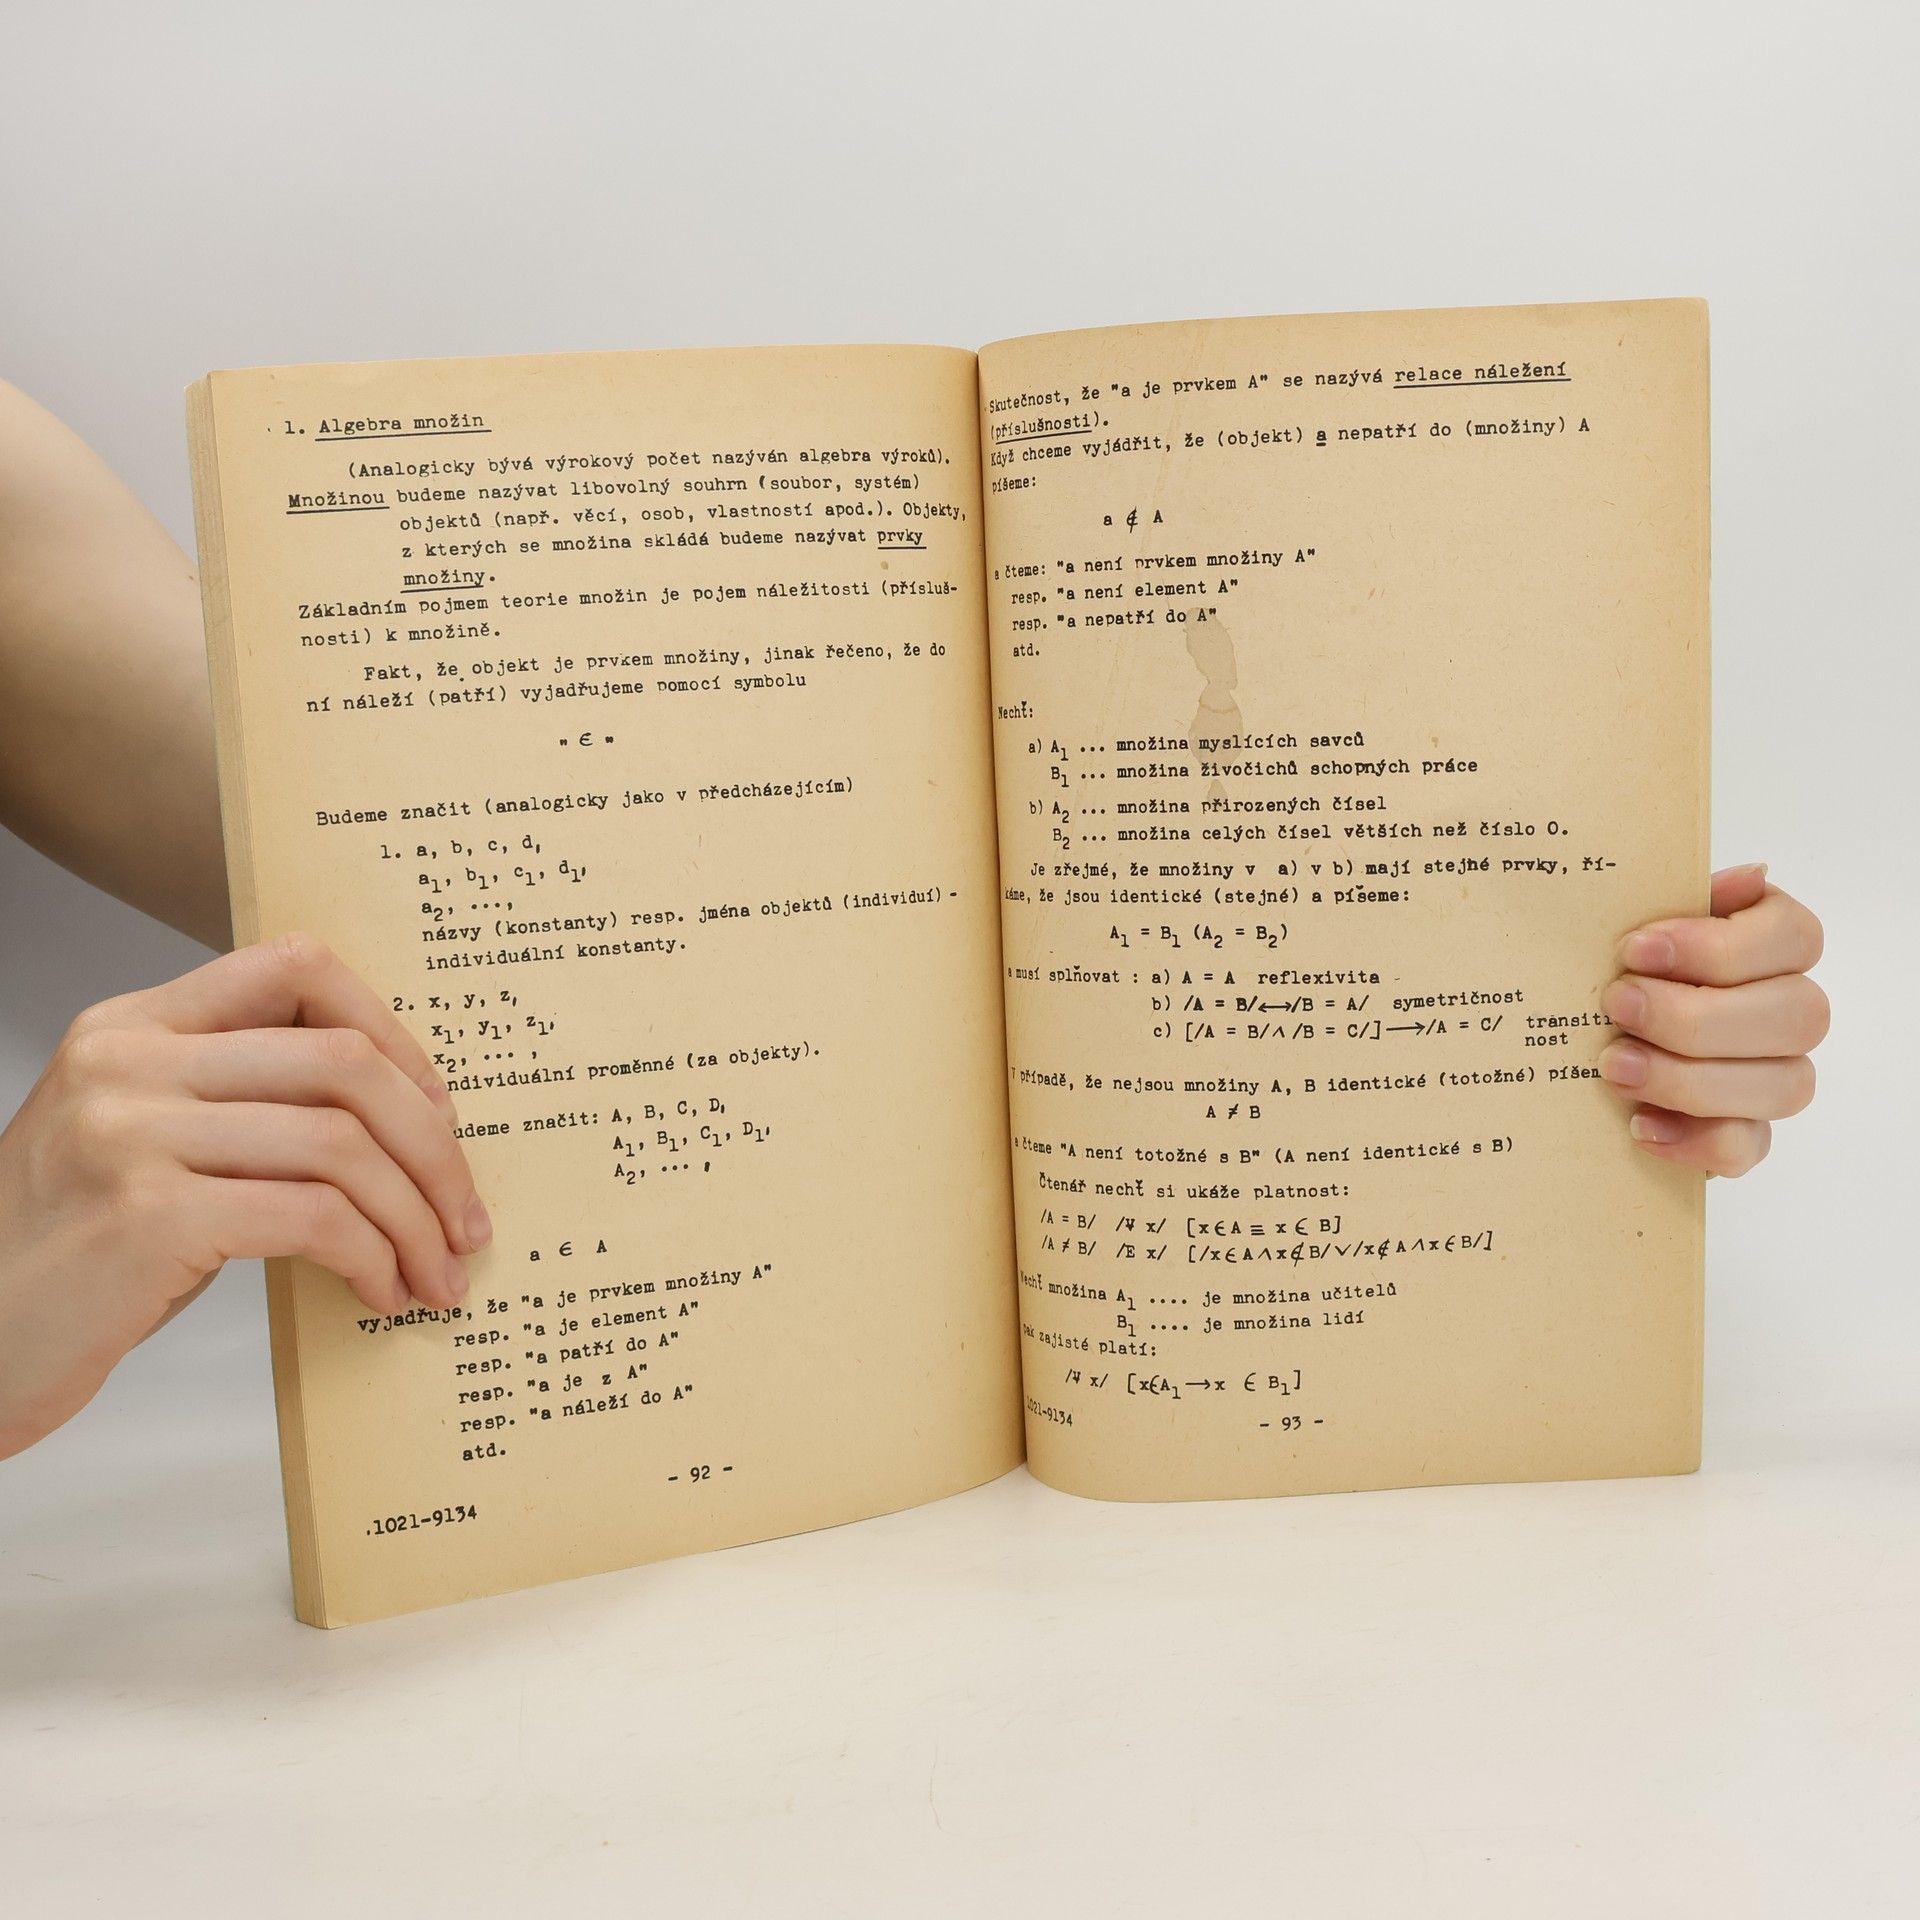 1. Algebra množin
(Analogicky bývá výrokový počet nazýván algebra výroků).
Množinou budeme nazývat libovolný souhrn (soubor, systém)
objektů (např. věcí, osob, vlastností apod.). Objekty,
z kterých se množina skládá budeme nazývat prvky
množiny.
Základním pojmem teorie množin je pojem náležitosti (přísluš-
nosti) k množině.
Fakt, že objekt je prvkem množiny, jinak řečeno, že do
ní náleží (patří) vyjadřujeme pomocí symbolu
" ∈ "
Budeme značit (analogicky jako v předcházejícím)
1. a, b, c, d,
a₁, b₁, c₁, d₁,
a₂, ...,
názvy (konstanty) resp. jména objektů (individuí) -
individuální konstanty.
2. x, y, z,
x₁, y₁, z₁,
x₂, ... ,
ndividuální proměnné (za objekty).
udeme značit: A, B, C, D,
A₁, B₁, C₁, D₁,
A₂, ... ,
a ∈ A
vyjadřuje, že "a je prvkem množiny A"
resp. "a je element A"
resp. "a patří do A"
resp. "a je z A"
resp. "a náleží do A"
atd.
- 92 -
.1021-9134
Skutečnost, že "a je prvkem A" se nazývá relace náležení
(příslušnosti).
Když chceme vyjádřit, že (objekt) a nepatří do (množiny) A
píšeme:
a ∉ A
a čteme: "a není prvkem množiny A"
resp. "a není element A"
resp. "a nepatří do A"
atd.
Nechť:
a) A₁ ... množina myslících savců
B₁ ... množina živočichů schopných práce
b) A₂ ... množina přirozených čísel
B₂ ... množina celých čísel větších než číslo O.
Je zřejmé, že množiny v a) v b) mají stejné prvky, ří-
káme, že jsou identické (stejné) a píšeme:
A₁ = B₁ (A₂ = B₂)
a musí splňovat : a) A = A reflexivita
b) /A = B/⟷/B = A/ symetričnost
c) [/A = B/∧/B = C/]⟶/A = C/ transiti
nost
V případě, že nejsou množiny A, B identické (totožné) píšem
A ≠ B
a čteme "A není totožné s B" (A není identické s B)
Čtenář nechť si ukáže platnost:
/A = B/ /∀ x/ [x∈A ≡ x ∈ B]
/A ≠ B/ /E x/ [/x∈A∧x∉B/∨/x∉A∧x∈B/]
Nechť množina A₁ .... je množina učitelů
B₁ .... je množina lidí
pak zajisté platí:
/∀ x/ [x∈A₁⟶x ∈ B₁]
1021-9134
- 93 -